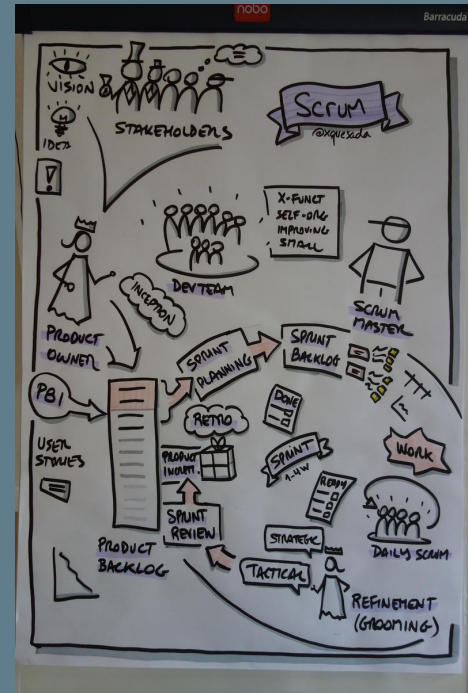 nobo
Barracuda
VISION
IDEA
!
STAKEHOLDERS
SCRUM
@xquesada
X-FUNCT
SELF-ORG
IMPROVING
SMALL
DEV TEAM
SCRUM
MASTER
PRODUCT
OWNER
INCEPTION
SPRINT
PLANNING
SPRINT
BACKLOG
PBI
USER
STORIES
RETRO
DONE
PRODUCT
INCREM.
SPRINT
1-4W
READY
WORK
SPRINT
REVIEW
PRODUCT
BACKLOG
STRATEGIC
TACTICAL
DAILY SCRUM
REFINEMENT
(GROOMING)